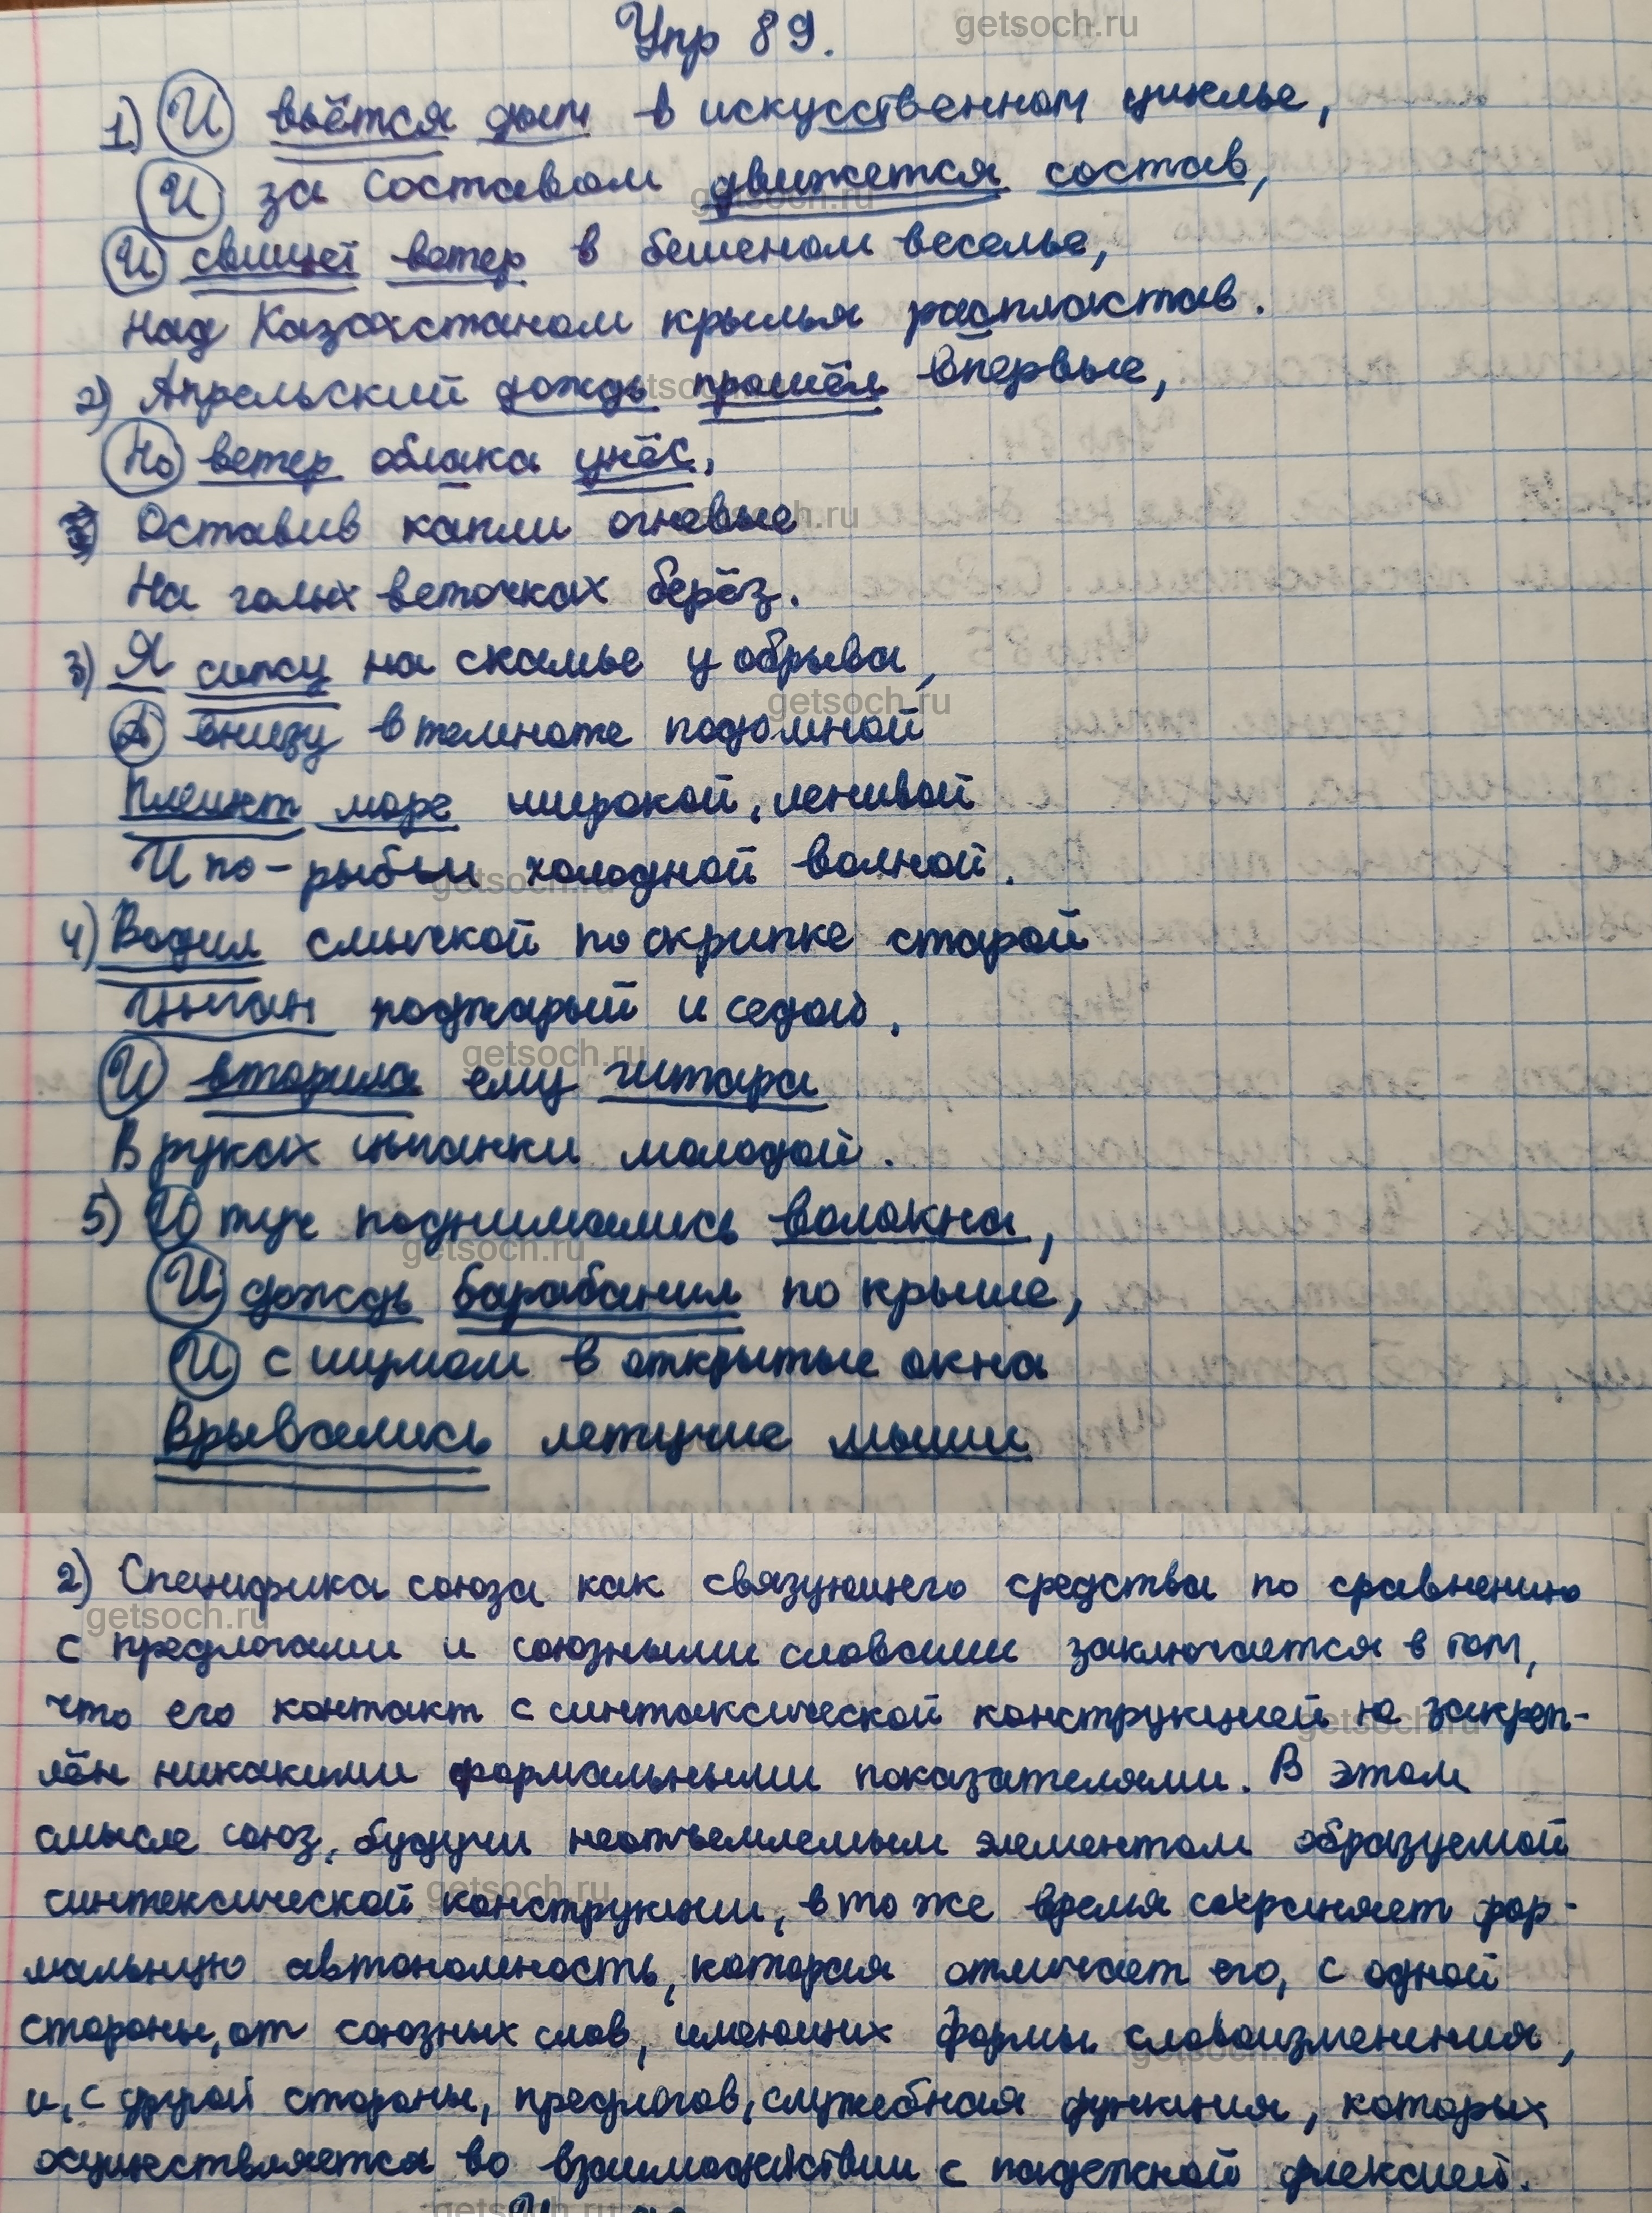 getsoch.ru
Упр 89.
1) И вьётся дым в искусственном циклье,
И за составом движется состав,
И свищет ветер в бешеном веселье,
Над Казахстаном крылья распластав.
2) Апрельский дождь прошёл впервые,
Но ветер облака унёс,
Оставив капли огневые
На голых веточках берёз.
3) Я сижу на скамье у обрыва,
А внизу в темноте подомной
Плещет море широкой, ленивой
И по-рыбьи холодной волной.
4) Водил смычкой по скрипке старой
Цыган поджарый и седой,
И вторила ему гитара
В руках цыганки молодой.
5) И туч поднимались волокна,
И дождь барабанил по крыше,
И с шумом в открытые окна
Врывались летучие мыши
2) Специфика союза как связующего средства по сравнению
с предлогами и союзными словами заключается в том,
что его контакт с синтаксической конструкцией не закреп-
лён никакими формальными показателями. В этом
смысле союз, будучи неотъемлемым элементом образуемой
синтексической конструкции, в то же время сохраняет фор-
мальную автономность, которая отличает его, с одной
стороны, от союзных слов, имеющих формы словоизменения,
и, с другой стороны, предлогов, служебная функция, которых
осуществляется во взаимодействии с падежной флексией.